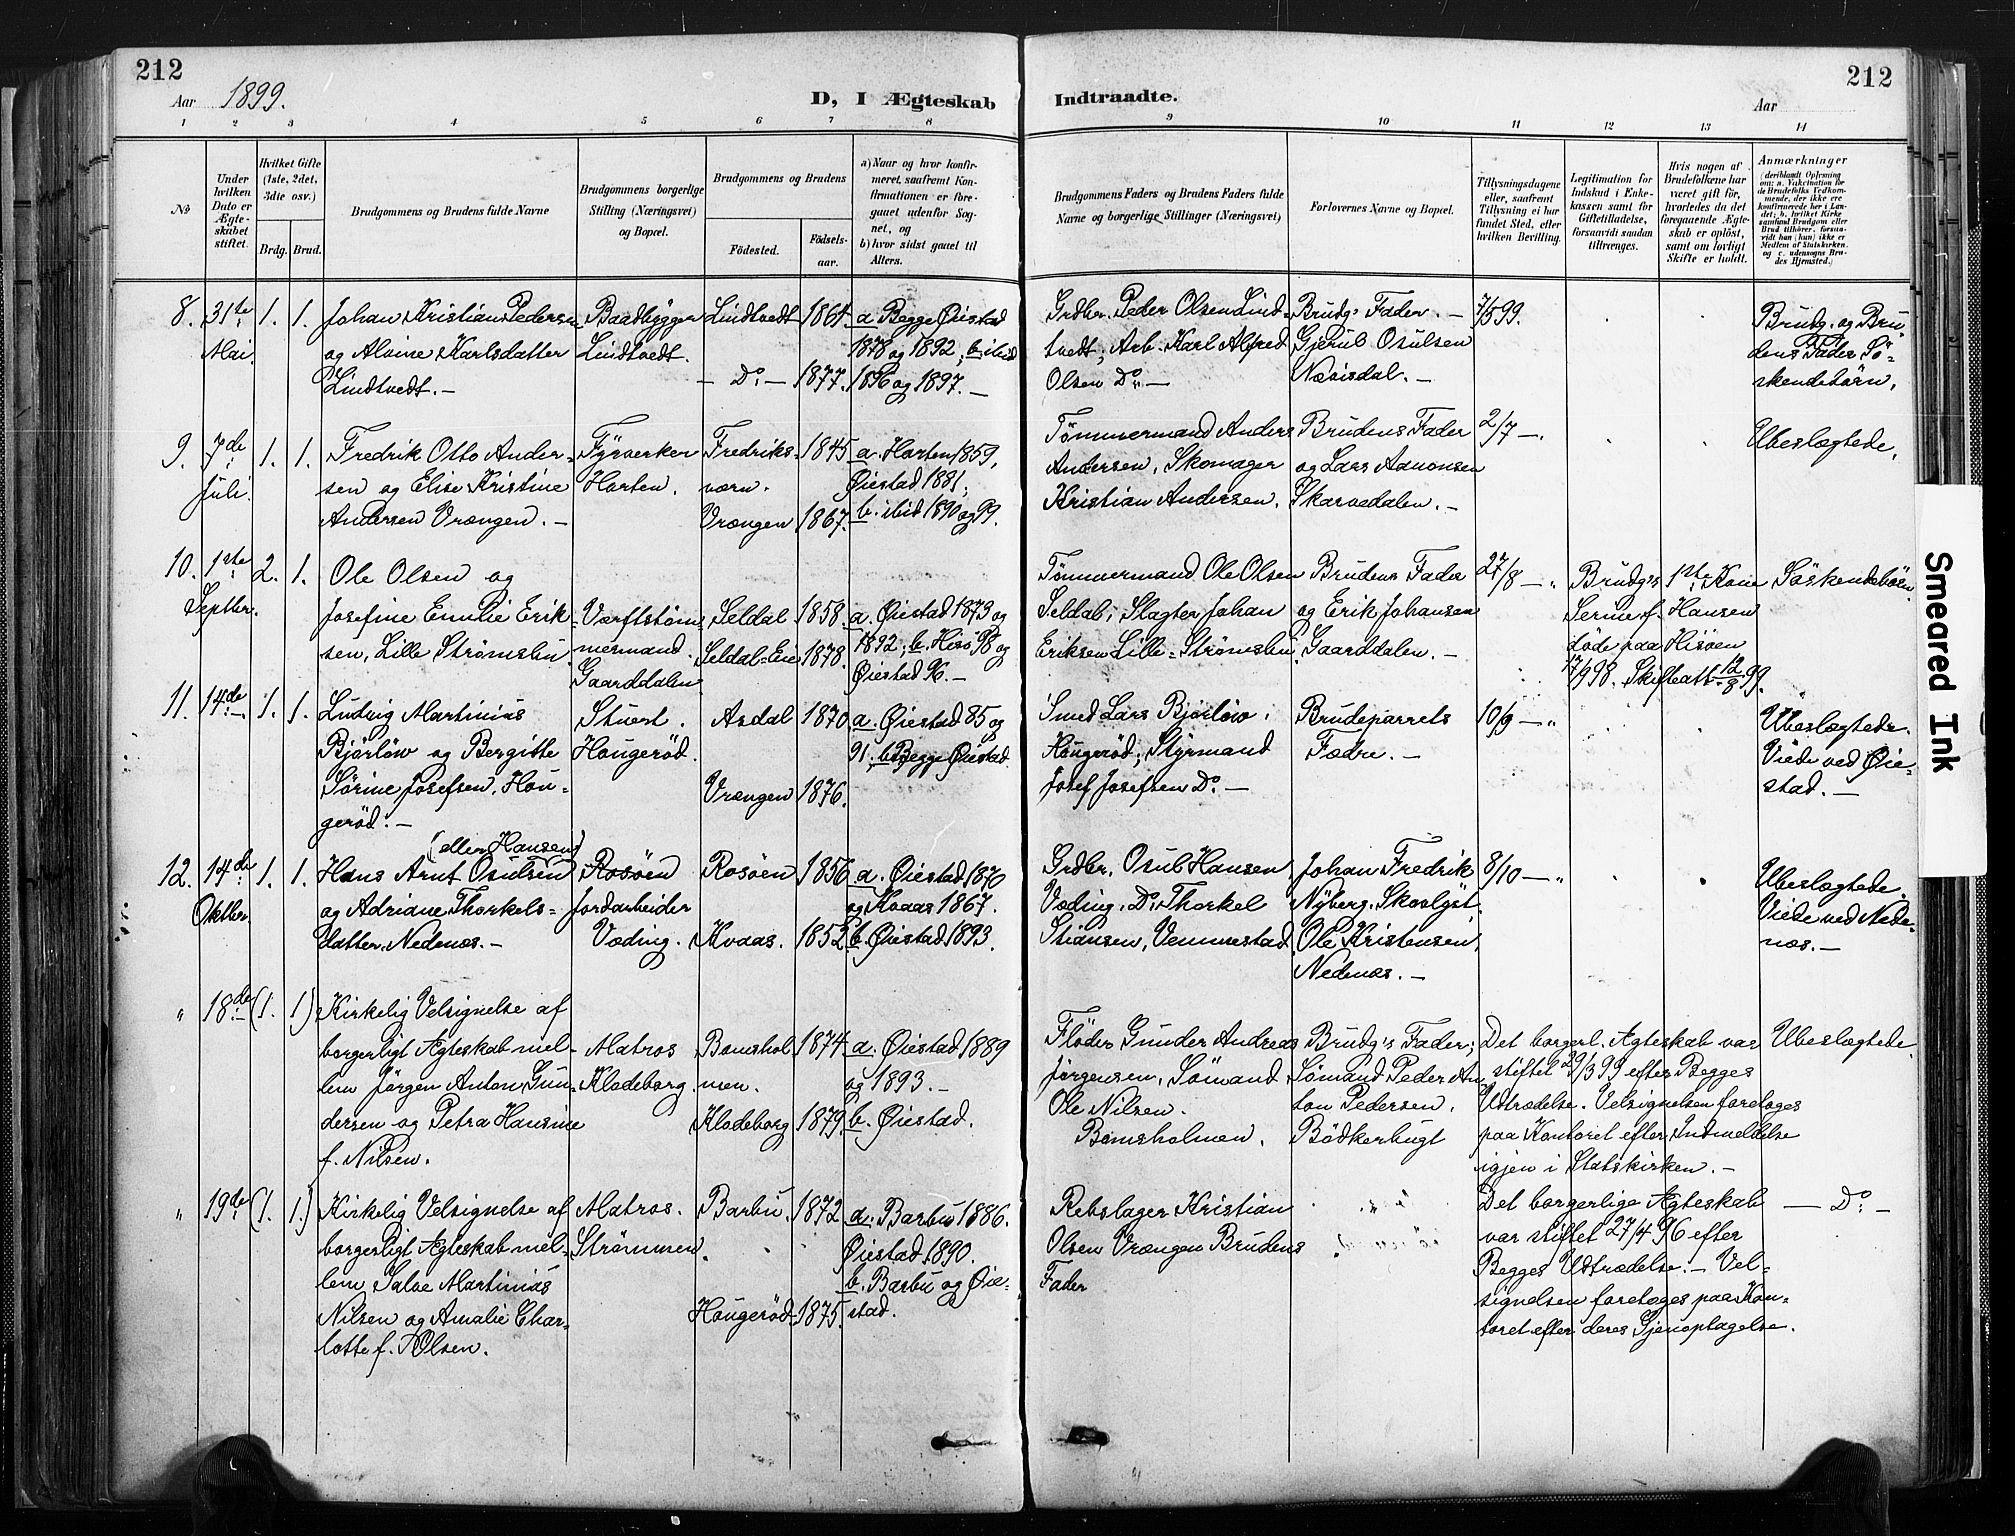 212
Aar 1899.
D, I Ægteskab
Indtraadte.
212
Aar
1 2 3 4 5 6 7 8 9 10 11 12 13 14
No
Under hvilken Dato er Ægteskabet stiftet.
Hvilket Gifte (1ste, 2det, 3die osv.)
Brdg. Brud.
Brudgommens og Brudens fulde Navne
Brudgommens borgerlige Stilling (Næringsvei) og Bopæl.
Brudgommens og Brudens
Födested.
Födselsaar.
a) Naar og hvor konfirmeret, saafremt Konfirmationen er foregaaet udenfor Sognet, og
b) hvor sidst gaaet til Alters.
Brudgommens Faders og Brudens Faders fulde Navne og borgerlige Stillinger (Næringsvei)
Forlovernes Navne og Bopæl.
Tillysningsdagene eller, saafremt Tillysning ei har fundet Sted, efter hvilken Bevilling.
Legitimation for Indskud i Enkekassen samt for Giftetilladelse, forsaavidt saadan tiltrænges.
Hvis nogen af Brudefolkene har været gift för, hvorledes da det foregaaende Ægteskab er oplöst, samt om lovligt Skifte er holdt.
Anmærkninger (deriblandt Oplysning om: a. Vakcination for de Brudefolks Vedkommende, der ikke ere konfirmerede her i Landet; b. hvilket Kirkesamfund Brudgom eller Brud tilhörer, forsaavidt han (hun) ikke er Medlem af Statskirken, og c. udensogns Brudes Hjemsted.)
8. 31te Mai. 1. 1.
Johan Kristian Pedersen
og Alvine Karlsdatter
Lindtvedt. —
Baadbygger
Lindtvedt.
Lindtvedt 1864
— Do. — 1877.
a. Begge Øiestad
1878 og 1892; b. ibid
1896 og 1897. —
Grdbr. Peder Olsen Lind-
tvedt; Arb. Karl Alfred
Olsen Do. —
Brudg.s Fader. —
Gjerul Osulsen
Næsisdal. —
7/5 99.
Brudg. og Bru-
dens Fader Sö-
skendebörn.
9. 7de Juli. 1. 1.
Fredrik Otto Ander-
sen og Elise Kristine
Andersen Vrængen. —
Fyrverker
Horten.
Fredriks-
værn. 1845
Vrængen 1867.
a. Horten 1859,
Øiestad 1881;
b. ibid 1890 og 99.
Tømmermand Anders
Andersen, Skomager
Kristian Andersen.
Brudens Fader
og Lars Aanonsen
Skarvedalen. —
2/7 —.
Ubeslægtede.
10. 1ste Septbr. 2. 1.
Ole Olsen og
Josefine Emilie Erik-
sen, Lille Strømsbu
Værftstøm-
mermand.
Gaarddalen
Seldal 1858.
Seldal-Eie 1878.
a. Øiestad 1873 og
1892; b. Hisö 98 og
Øiestad 96. —
Tømmermand Ole Olsen
Seldal; Slagter Johan
Eriksen Lille-Strømsbu.
Brudens Fader
og Erik Johansen
Gaarddalen. —
27/8 — „
Brudg.s 1ste Kone
Serine f. Hansen
döde paa Hisöen
17/9 98. Skifteatt. 12/8 99.
Söskendebörn.
11. 14de — 1. 1.
Ludvig Martinius
Bjørløw og Bergitte
Sörine Josefsen, Hou-
geröd. —
Stuert.
Hougeröd.
Asdal 1870.
Vrængen 1876.
a. Øiestad 85 og
91. b. Begge Øiestad
Smed Lars Bjørløw,
Hougeröd; Styrmand
Josef Josefsen Do. —
Brudeparrets
Fædre. —
10/9 — „
Ubeslægtede.
Viede ved Øie-
stad. —
12. 14de Oktbr. 1. 1.
(eller Hansen)
Hans Arnt Osulsen
og Adriane Thorkels-
datter, Nedenæs. —
Rosöen
Jordarbeider
Væding.
Rosöen 1856
Kvaas. 1852.
a. Øiestad 1870
og Kvaas 1867.
b. Øiestad 1893.
Grdbr. Osul Hansen,
Væding. Do. Thorkel
Stiansen, Vemmestad
Johan Fredrik
Nyberg. Skovlyst.
Ole Kristensen,
Nedenæs. —
8/10 — „
Ubeslægtede.
Viede ved Nede-
næs. —
„ 18de — (1. 1.)
Kirkelig Velsignelse af
borgerligt Ægteskab mel-
lem Jörgen Anton Gun-
dersen og Petra Hansine
f. Nilsen.
Matros
Klodeborg.
Bomshol-
men. 1874
Klodeborg 1879.
a. Øiestad 1889
og 1893. —
b. Øiestad.
Fløder Gunder Andreas
Jörgensen, Sömand
Ole Nilsen.
Bomsholmen.
Brudg.s Fader;
Sömand Peder An-
ton Pedersen.
Bödkerbugt
Det borgerl. Ægteskab var
stiftet 29/3 99 efter Begges
Udtrædelse. Velsignelsen foretoges
paa Kontoret efter Indmeldelse
igjen i Statskirken. —
Ubeslægtede.
„ 19de (1. 1.)
Kirkelig Velsignelse af
borgerligt Ægteskab mel-
lem Salve Martinius
Nilsen og Amalie Char-
lotte f. Olsen.
Matros.
Strømmen
Barbu. 1872
Hougeröd 1875.
a. Barbu 1886.
Øiestad 1890.
b. Barbu og Øie-
stad.
Rebslager Kristian
Olsen Vrængen Brudens
Fader
Det borgerlige Ægteskab
var stiftet 27/4 96 efter
Begges Udtrædelse. — Vel-
signelsen foretoges paa Kon-
toret efter deres Gjenoptagelse.
— Do. —
Smeared Ink